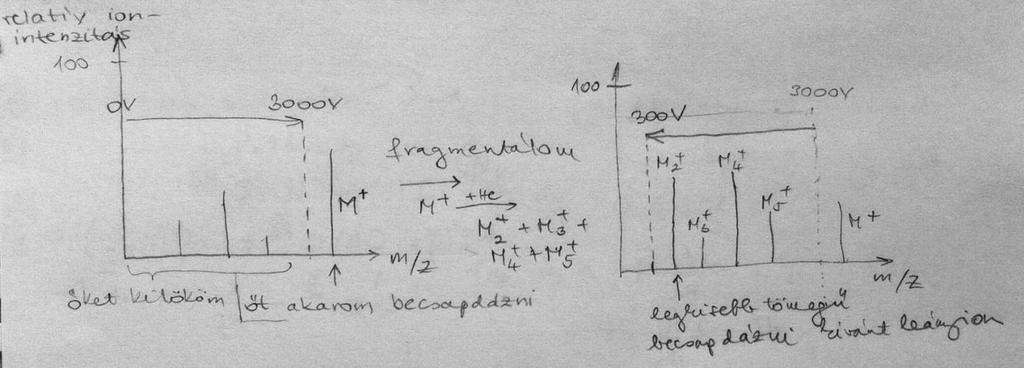 relatív ion-
intenzitás
100
0V 3000V
M⁺
m/z
őket kilököm | őt akarom becsapdázni
fragmentálom
M⁺ +He
M₂⁺ + M₃⁺ +
M₄⁺ + M₅⁺
100
3000V
300V
M₂⁺
M₆⁺
M₄⁺
M₅⁺
M⁺
m/z
legkisebb tömegű
becsapdázni kívánt leányion